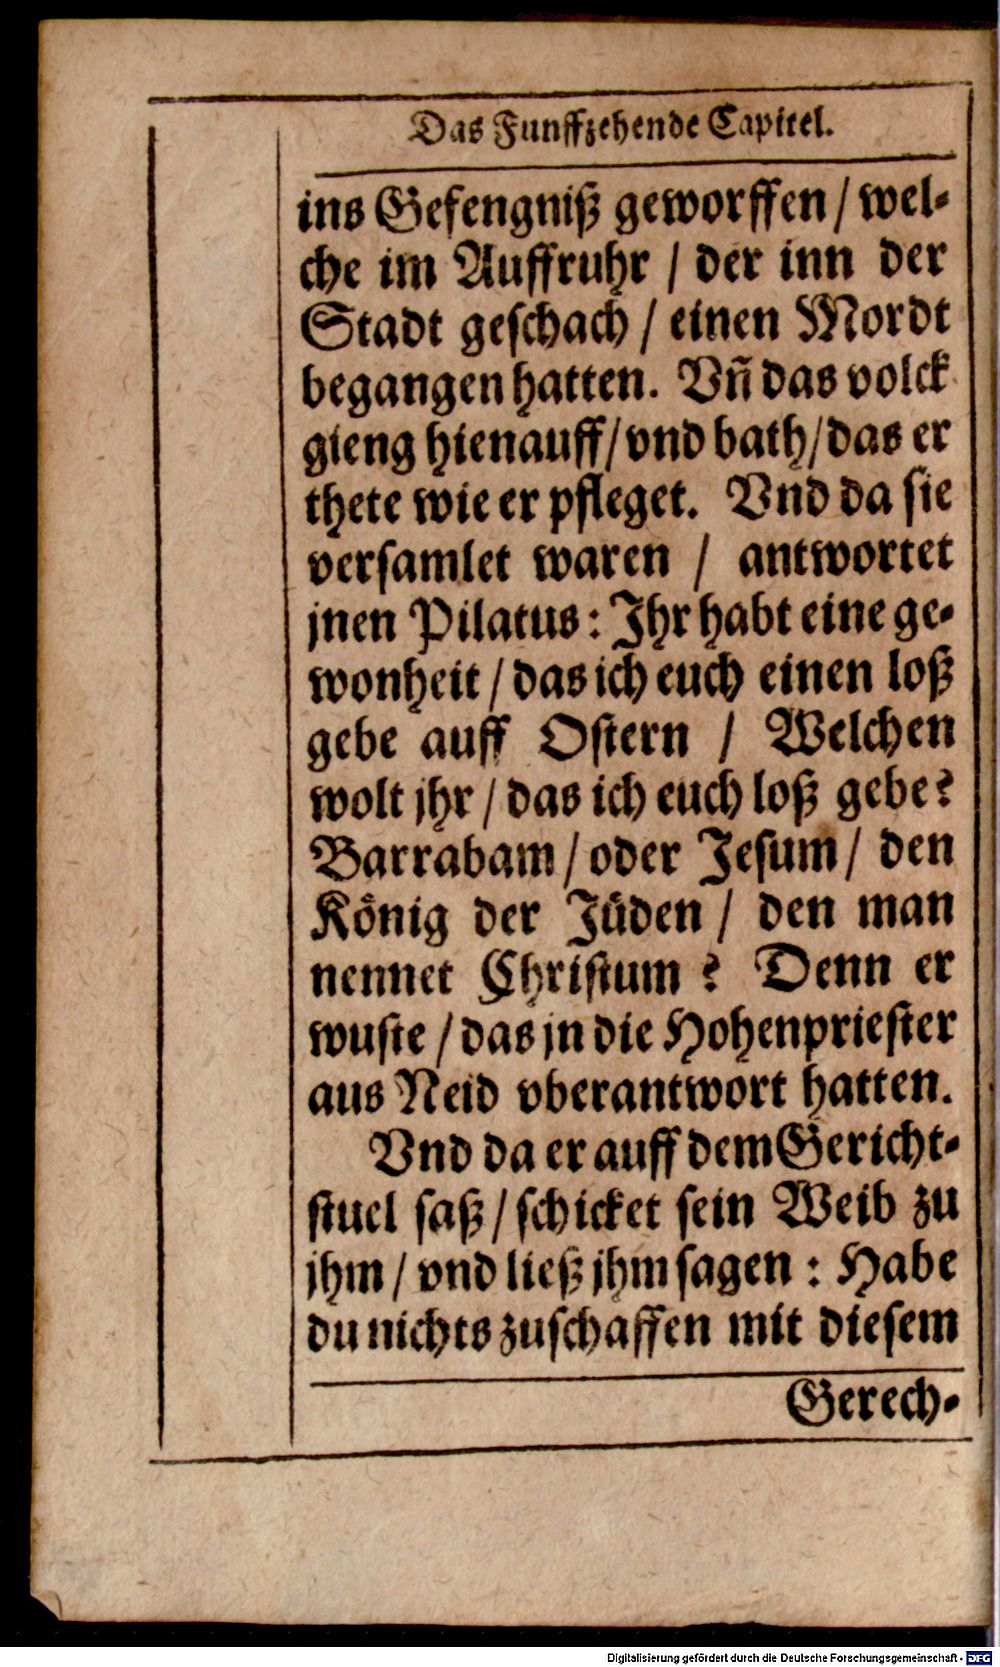 Das Funffzehende Capitel.
ins Gefengniß geworffen / wel-
che im Auffruhr / der inn der
Stadt geschach / einen Mordt
begangen hatten. Vñ das volck
gieng hienauff / vnd bath / das er
thete wie er pfleget. Vnd da sie
versamlet waren / antwortet
jnen Pilatus: Ihr habt eine ge-
wonheit / das ich euch einen loß
gebe auff Ostern / Welchen
wolt jhr / das ich euch loß gebe?
Barrabam / oder Jesum / den
König der Jüden / den man
nennet Christum? Denn er
wuste / das jn die Hohenpriester
aus Neid vberantwort hatten.
Vnd da er auff dem Gericht-
stuel saß / schicket sein Weib zu
jhm / vnd ließ jhm sagen: Habe
du nichts zuschaffen mit diesem
Gerech-
Digitalisierung gefördert durch die Deutsche Forschungsgemeinschaft - DFG